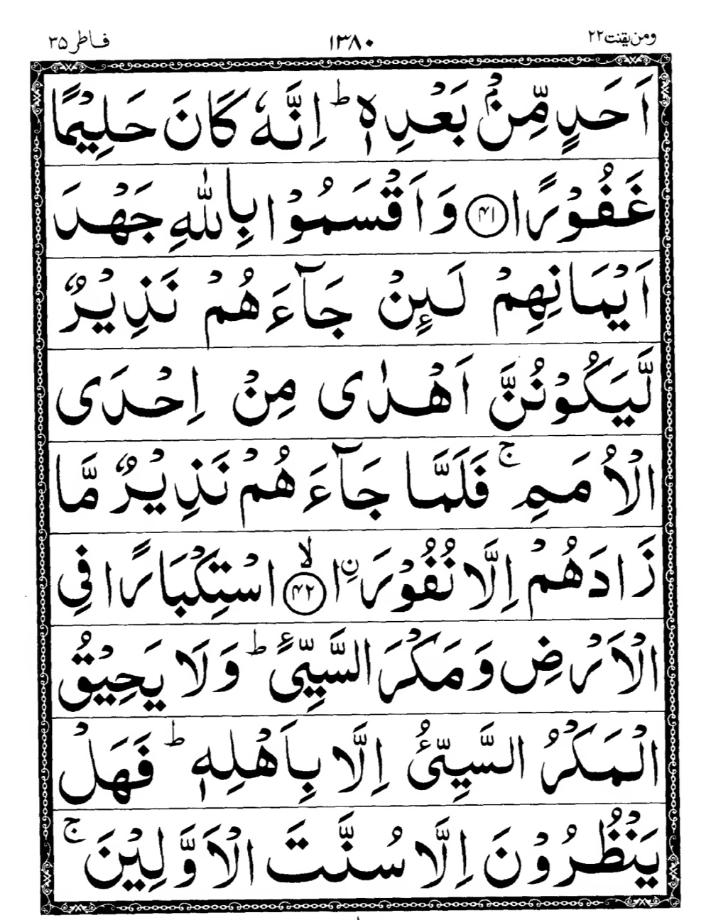 ومن يقنت ٢٢ ١٣٨٠ فاطر ٣٥
اَحَدٍ مِّنْۢ بَعْدِهٖ ؕ اِنَّهٗ كَانَ حَلِيْمًا
غَفُوْرًا ﴿۴۱﴾ وَاَقْسَمُوْا بِاللّٰهِ جَهْدَ
اَيْمَانِهِمْ لَىِٕنْ جَآءَهُمْ نَذِيْرٌ
لَّيَكُوْنُنَّ اَهْدٰى مِنْ اِحْدَى
الْاُمَمِ ۚ فَلَمَّا جَآءَهُمْ نَذِيْرٌ مَّا
زَادَهُمْ اِلَّا نُفُوْرَاۙ ِ۟ن ﴿۴۲﴾ اسْتِكْبَارًا فِى
الْاَرْضِ وَمَكْرَ السَّيِّئِ ؕ وَلَا يَحِيْقُ
الْمَكْرُ السَّيِّئُ اِلَّا بِاَهْلِهٖ ؕ فَهَلْ
يَنْظُرُوْنَ اِلَّا سُنَّتَ الْاَوَّلِيْنَ ۚ